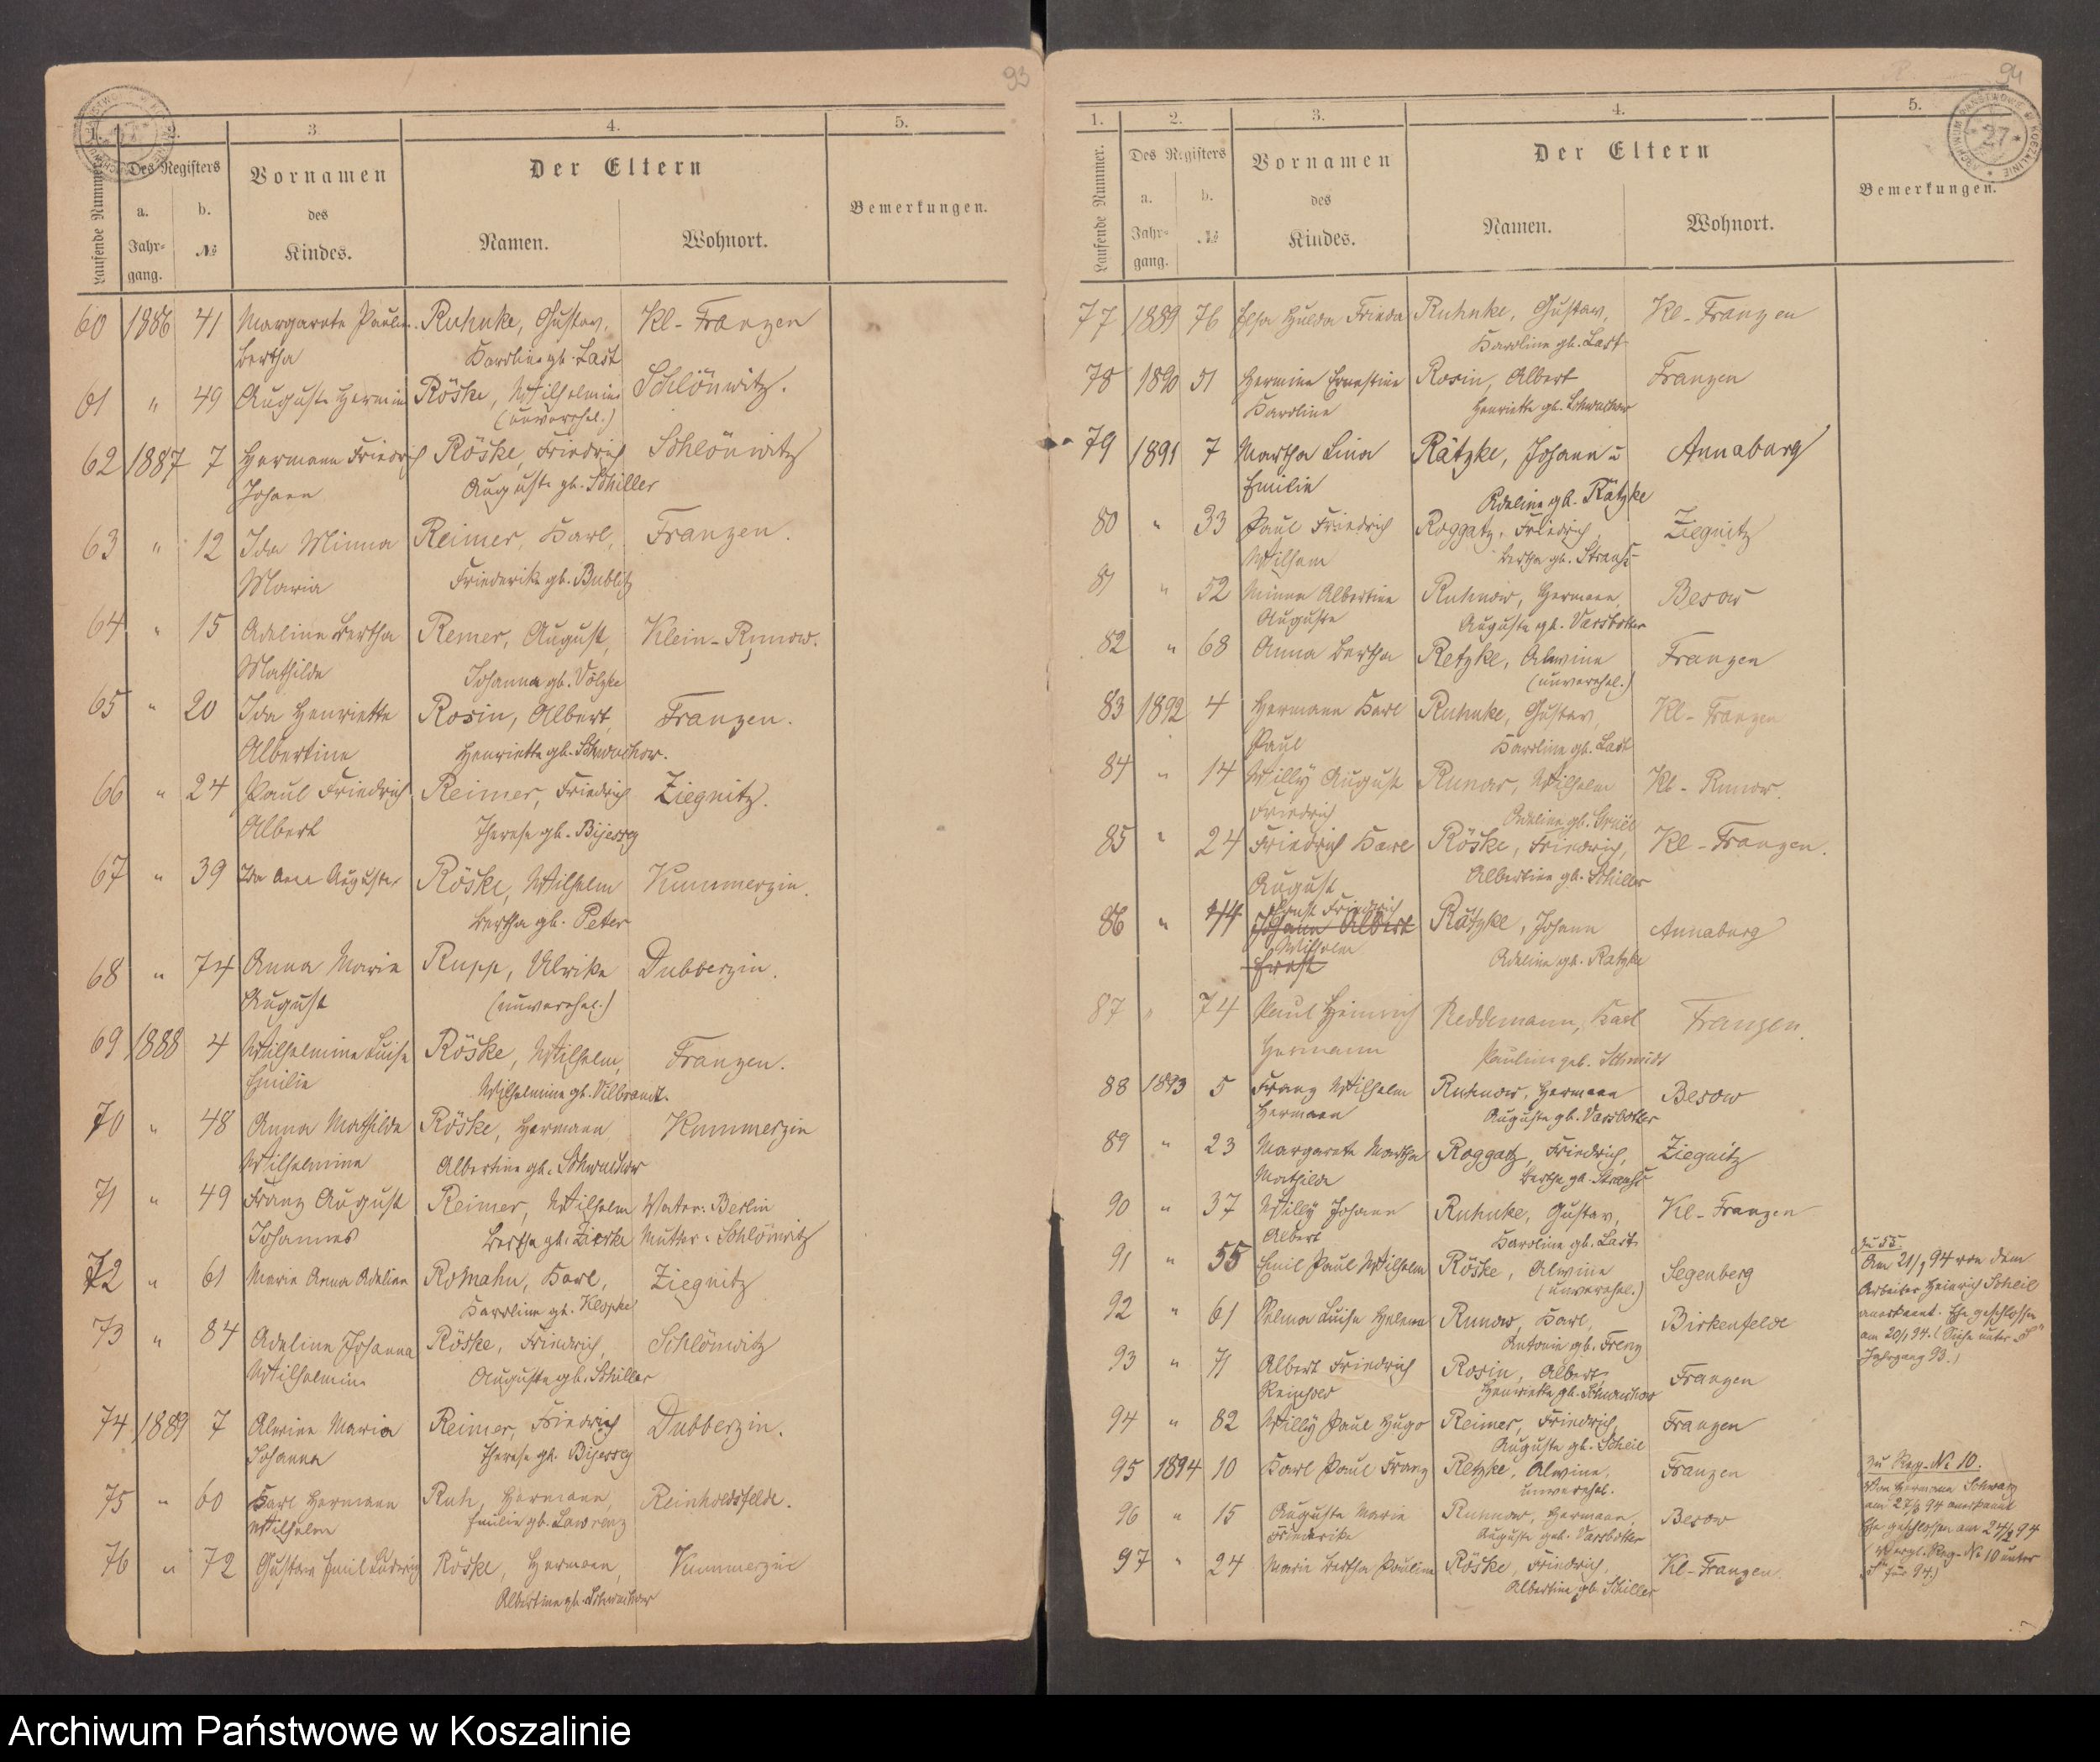 93
1. 2. 3 4. 5.
Laufende Nummer.
Des Registers
Vornamen
des
Kindes.
Der Eltern
Bemerkungen.
a. b.
Jahr-
gang. №
Namen. Wohnort.
60 1886 41 Margarete Pauline Ruhnke, Gustav, Kl-Franzen
Bertha Karoline gb. Last
61 " 49 Auguste Hermine Röske, Wilhelmine Schlönwitz.
(unverehel.)
62 1887 7 Hermann Friedrich Röske, Friedrich Schlönwitz
Johann Auguste gb. Schiller
63 " 12 Ida Minna Reimer, Karl, Franzen.
Maria Friederike gb. Bublitz
64 " 15 Adeline Bertha Remer, August, Klein-Runow.
Mathilde Johanna gb. Völzke
65 " 20 Ida Henriette Rosin, Albert, Franzen.
Albertine Henriette gb. Schwuchow.
66 " 24 Paul Friedrich Reimer, Friedrich Ziegnitz.
Albert Therese gb.
67 " 39 Ida Anna Auguste Röske, Wilhelm Kummerzin.
Bertha gb. Peter
68 " 74 Anna Marie Rupp, Ulrike Dubberzin.
August (unverehel.)
69 1888 4 Wilhelmine Luise Röske, Wilhelm, Franzen.
Emilie Wilhelmine gb. Vilbrandt.
70 " 48 Anna Mathilde Röske, Hermann, Kummerzin
Wilhelmine Albertine gb. Schwuchow
71 " 49 Franz August Reimer, Wilhelm Vater: Berlin
Johannes Bertha gb. Zierke Mutter: Schlönwitz
72 " 61 Marie Anna Adeline Romahn, Karl, Ziegnitz
Karoline gb.
73 " 84 Adeline Johanna Röske, Friedrich, Schlönwitz
Wilhelmine Auguste gb. Schiller
74 1889 7 Alwine Maria Reimer, Friedrich Dubberzin.
Johanna Therese gb.
75 " 60 Karl Hermann Ruh, Hermann, Reinholdsfelde.
Wilhelm Emilie gb. Lawrenz
76 " 72 Gustav Emil Ludwig Röske, Hermann, Kummerzin
Albertine gb. Schwuchow
94
1. 2. 3. 4. 5.
ARCHIWUM PAŃSTWOWE W KOSZALINIE
* 27 *
Laufende Nummer.
Des Registers
Vornamen
des
Kindes.
Der Eltern
Bemerkungen.
a. b.
Jahr-
gang. №
Namen. Wohnort.
77 1889 76 Elsa Hulda Frieda Ruhnke, Gustav, Kl-Franzen
Karoline gb. Last
78 1890 51 Hermine Ernestine Rosin, Albert Franzen
Karoline Henriette gb. Schwuchow
79 1891 7 Martha Lina Rätzke, Johann u Annaburg
Emilie Adeline gb. Rätzke
80 " 33 Paul Friedrich Roggatz, Friedrich, Ziegnitz
Wilhelm Bertha gb. Strauß
81 " 52 Minna Albertine Ruhnow, Hermann, Besow
Auguste Auguste gb. Varsbotter
82 " 68 Anna Bertha Retzke, Alwine Franzen
(unverehel.)
83 1892 4 Hermann Karl Ruhnke, Gustav, Kl-Franzen
Paul Karoline gb. Last
84 " 14 Willy August Runow, Wilhelm Kl-Runow.
Friedrich Adeline gb.
85 " 24 Friedrich Karl Röske, Friedrich, Kl-Franzen.
August Albertine gb. Schiller
Ernst Friedrich
86 " 44 Johann Albert Rätzke, Johann Annaburg
Wilhelm
Ernst Adeline gb. Ratzke
87 " 74 Paul Heinrich Reddemann, Karl Franzen.
Hermann Pauline geb. Schmidt
88 1893 5 Franz Wilhelm Ruhnow, Hermann Besow
Hermann Auguste gb. Varsbotter
89 " 23 Margarete Martha Roggatz, Friedrich, Ziegnitz
Mathilde Bertha gb. Strauß
90 " 37 Willy Johann Ruhnke, Gustav, Kl-Franzen
Albert Karoline gb. Last
91 " 55 Emil Paul Wilhelm Röske, Alwine Segenberg
(unverehel.)
92 " 61 Selma Luise Helene Runow, Karl, Birkenfelde
Antonie gb. Frenz
93 " 71 Albert Friedrich Rosin, Albert, Franzen
Reinhold Henriette gb. Schwuchow
94 " 82 Willy Paul Hugo Reimer, Friedrich, Franzen
Auguste gb. Scheil
95 1894 10 Karl Paul Franz Retzke, Alwine, Franzen
unverehel.
96 " 15 Auguste Marie Ruhnow, Hermann, Besow
Friederike Auguste geb. Varsbotter
97 " 24 Marie Bertha Pauline Röske, Friedrich, Kl-Franzen.
Albertine gb. Schiller
Zu 55.
Am 21/1 94 von dem
Arbeiter Heinrich Scheil
anerkannt. Ehe geschlossen
am 20/1 94. (Siehe unter "S"
Jahrgang 93.)
zu Reg.-№ 10.
Von Hermann Schwarz
am 27/3 94 anerkannt
Ehe geschlossen am 24/3 94
(Vergl. Reg-№ 10 unter
"S" für 94.)
Archiwum Państwowe w Koszalinie